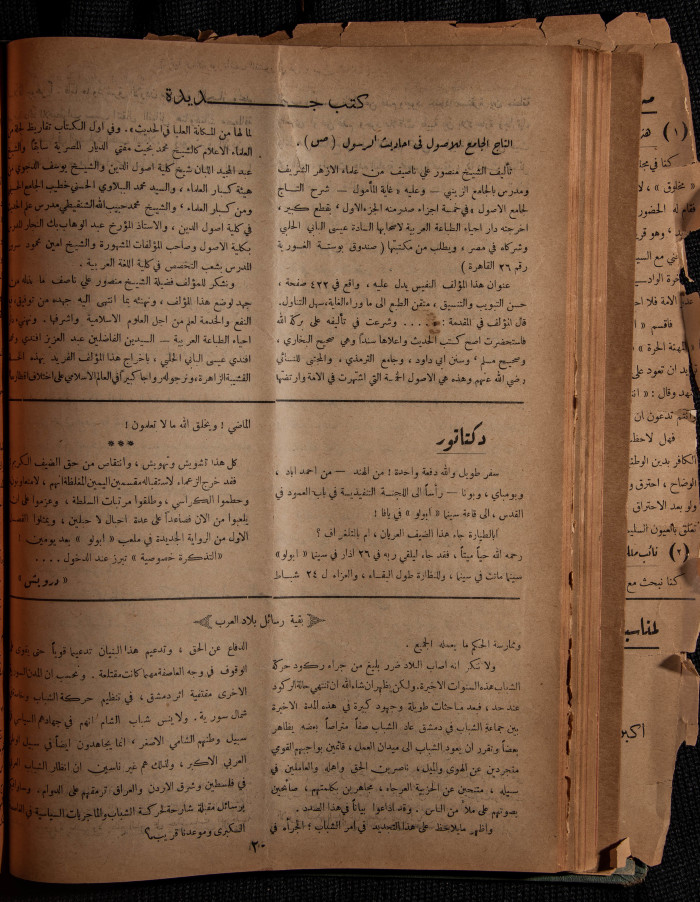 كتب جـــديدة
التاج الجامع للاصول فى احاديث الرسول (ص) .
تأليف الشيخ منصور على ناصيف من علماء الازهر الشريف
ومدرس بالجامع الزينبي – وعليه « غاية المأمول – شرح التاج
لجامع الاصول » فى خمسة اجزاء صدر منه الجزء الاول ، بقطع كبير ،
اخرجته دار احياء الطباعة العربية لاصحابها السادة عيسى البابي الحلبي
وشركاه في مصر ، ويطلب من مكتبتها ( صندوق بوستة الغورية
رقم ٢٦ القاهرة )
عنوان هذا المؤلف النفيس يدل عليه ، واقع في ٤٢٢ صفحة ،
حسن التبويب والتنسيق ، متقن الطبع الى ما وراء الغاية ، سهل التناول .
قال المؤلف في المقدمة : . . . . . وشرعت في تأليفه على بركة الله
فاستحضرت اصح كتب الحديث واعلاها سنداً وهي صحيح البخاري ،
وصحيح مسلم ، وسنن ابي داود ، وجامع الترمذي ، والمجتبى للنسائي
رضي الله عنهم وهذه هي الاصول الخمسة التي اشتهرت في الامة وارتضتها
لما لها من المكانة العليا في الحديث » . وفي اول الكتاب تقاريظ
العلماء الاعلام كالشيخ محمد بخيت مفتي الديار المصرية سابقاً والشيخ
عبد المجيد اللبان شيخ كلية اصول الدين والشيخ يوسف الدجوي من
هيئة كبار العلماء ، والسيد محمد الببلاوي الحسني خطيب الجامع
ومن كبار العلماء ، والشيخ محمد حبيب الله الشنقيطي مدرس علم
في كلية اصول الدين ، والاستاذ المؤرخ عبد الوهاب بك النجار المدرس
بكلية الاصول وصاحب المؤلفات المشهورة والشيخ امين محمود سرور
المدرس بشعب التخصص في كلية اللغة العربية .
ونشكر للمؤلف فضيلة الشيخ منصور علي ناصف ما بذله من
جهد لوضع هذا المؤلف ، ونهنئه بما انتهى اليه جهده من توفيق
النفع والخدمة لعلم من اجل العلوم الاسلامية واشرفها . ونهنئ دار
احياء الطباعة العربية – السيدين الفاضلين عبد العزيز افندي
افندي عيسى البابي الحلبي ، باخراج هذا المؤلف الفريد بهذه
القشيبة الزاهرة ، ونرجو له رواجاً كبيراً في العالم الاسلامي على اختلاف اقطاره
دكتاتور
سفر طويل والله دفعة واحدة ! من الهند – من احمد اباد ،
وبومباي ، وبونا – رأساً الى اللجنة التنفيذية في باب العمود في
القدس ، الى قاعة سينما « ابولو » في يافا !
أبالطيارة جاء هذا الضيف العريان ، ام بالتلغراف ؟
رحمه الله حياً ميتاً ، فقد جاء ليلقي ربه في ٢٦ اذار في سينما « ابولو »
سينما ماتت في سينما ، وللنظارة طول البقاء ، والعزاء ل ٢٤ شباط
الماضي ! ويخلق الله ما لا تعلمون !
***
كل هذا تشويش وتهويش ، وانتقاص من حق الضيف الكريم
فقد خرج الزعماء لاستقباله مقسمين اليمين المغلظة انهم ،
وحطموا الكراسي ، وطلقوا مرتبات السلطة ، وعزموا على ان
يلعبوا من الان فصاعداً على عدة احبال لا حبلين ، ويمثلوا الفصل
الاول من الرواية الجديدة في ملعب « ابولو » بعد يومين !
« التذكرة خصوصية » تبرز عند الدخول . . . .
« درويش »
بقية رسائل بلاد العرب
وممارسة الحكم ما يعدله الجميع .
ولا ننكر انه اصاب البلاد ضرر بليغ من جراء ركود حركة
الشباب هذه السنوات الاخيرة . ولكن يظهر ان شاء الله ان تنتهي حالة الركود
عند حد ، فبعد مباحثات طويلة وجهود كبيرة في هذه المدة الاخيرة
بين جماعة الشباب في دمشق عاد الشباب صفاً متراصاً بعضه يظاهر
بعضاً وتقرر ان يعود الشباب الى ميدان العمل ، قائمين بواجبهم القومي
متجردين عن الهوى والميل ، ناصرين الحق واهله والعاملين في
سبيله ، متنحين عن الحزبية العرجاء ، مجاهرين بكلمتهم ، صائحين
بصوتهم على ملأ من الناس . وقد اذاعوا بياناً في هذا الصدد .
واظهر ما يلاحظ على هذا التجديد في امر الشباب : الجرأة في
الدفاع عن الحق ، وتدعيم هذا البنيان تدعيماً قوياً حتى يقوى
الوقوف في وجه العاصفة مهما كانت مقتلعة . ونحسب ان المدن السورية
الاخرى مقتفية اثر دمشق ، في تنظيم حركة الشباب
شمال سورية . ولا ينس شباب الشام انهم في جهادهم السياسي في
سبيل وطنهم الشامي الاصغر ، انما يجاهدون ايضاً في سبيل الوطن
العربي الاكبر ، ولذلك هم غير ناسين ان انظار الشباب العربي
في فلسطين وشرق الاردن والعراق ترمقهم على الدوام .
برسائل مقبلة شارحة لحركة الشباب والماجريات السياسية في
الكبرى وموعدنا قريب .
٢٠
(١)
كنا في مجا
« مخلوق » ، لا
فقام له الحضور
فاقسم « ا
ان تعود على
وقال : « ان
تدعون ان
فهل لاحظ
الكافر بدين الوطن
ولو بعد الاحتراق
(٢)
كنا نبحث مع
لمناسبة